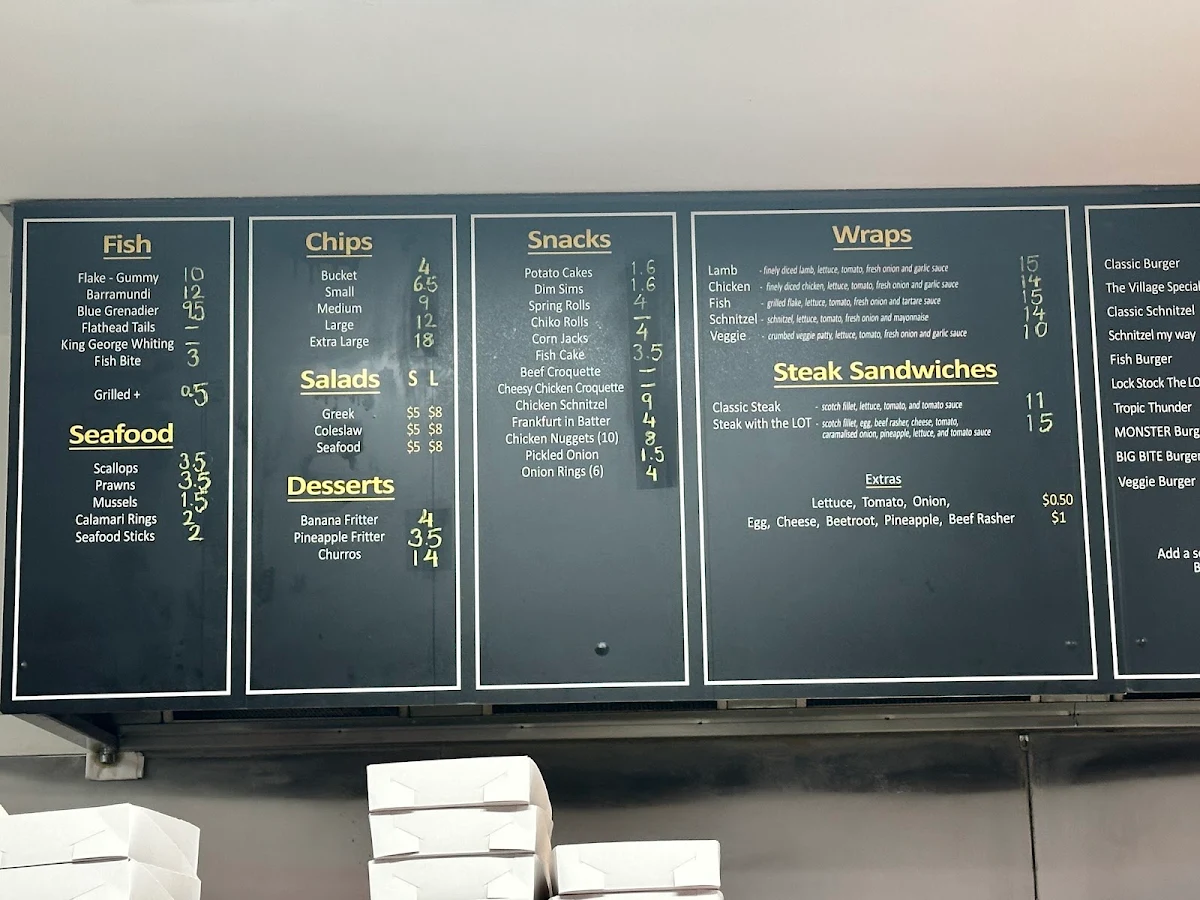 Fish
Flake - Gummy 10
Barramundi 12
Blue Grenadier 9.5
Flathead Tails –
King George Whiting –
Fish Bite 3
Grilled + 0.5
Seafood
Scallops 3.5
Prawns 3.5
Mussels 1.5
Calamari Rings 2
Seafood Sticks 2
Chips
Bucket 4
Small 6.5
Medium 9
Large 12
Extra Large 18
Salads S L
Greek $5 $8
Coleslaw $5 $8
Seafood $5 $8
Desserts
Banana Fritter 4
Pineapple Fritter 3.5
Churros 14
Snacks
Potato Cakes 1.6
Dim Sims 1.6
Spring Rolls 4
Chiko Rolls –
Corn Jacks 4
Fish Cake 3.5
Beef Croquette –
Cheesy Chicken Croquette –
Chicken Schnitzel 9
Frankfurt in Batter 4
Chicken Nuggets (10) 8
Pickled Onion 1.5
Onion Rings (6) 4
Wraps
Lamb - finely diced lamb, lettuce, tomato, fresh onion and garlic sauce 15
Chicken - finely diced chicken, lettuce, tomato, fresh onion and garlic sauce 14
Fish - grilled flake, lettuce, tomato, fresh onion and tartare sauce 15
Schnitzel - schnitzel, lettuce, tomato, fresh onion and mayonnaise 14
Veggie - crumbed veggie patty, lettuce, tomato, fresh onion and garlic sauce 10
Steak Sandwiches
Classic Steak - scotch fillet, lettuce, tomato, and tomato sauce 11
Steak with the LOT - scotch fillet, egg, beef rasher, cheese, tomato, 15
caramalised onion, pineapple, lettuce, and tomato sauce
Extras
Lettuce, Tomato, Onion, $0.50
Egg, Cheese, Beetroot, Pineapple, Beef Rasher $1
Classic Burger
The Village Special
Classic Schnitzel
Schnitzel my way
Fish Burger
Lock Stock The LO
Tropic Thunder
MONSTER Burg
BIG BITE Burger
Veggie Burger
Add a s
B